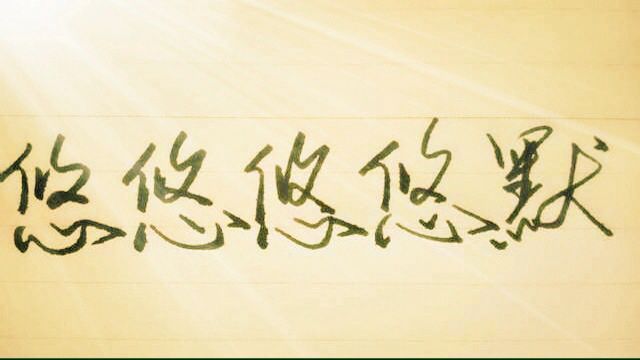 悠悠悠悠默